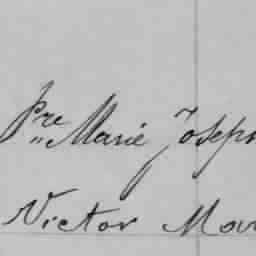 Pre Marie Joseph
Victor Mar